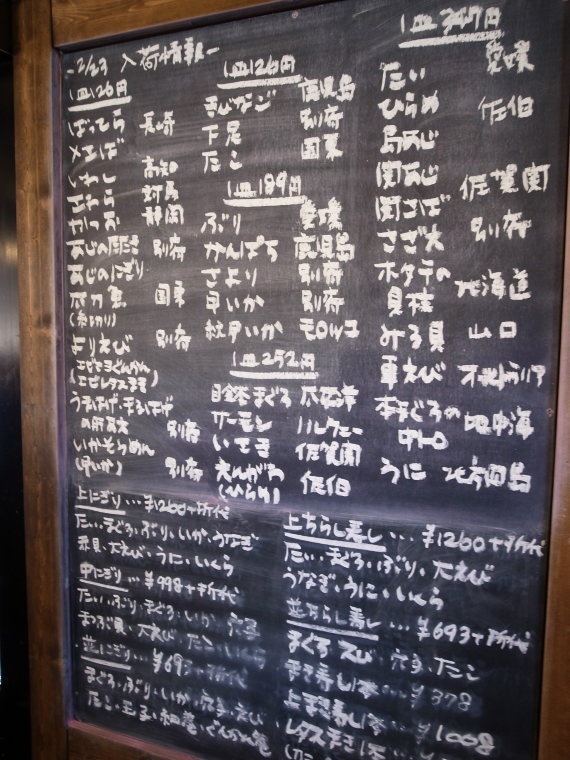 -2/23 入荷情報-
1皿126円
ばってら 長崎
メさば
いわし 高知
さわら 対馬
かつお 静岡
あじの開き 別府
あじのにぎり
太刀魚 国東
(糸切り)
よりえび 別府
(エビレタスママ)
うまづらはげ・まるはげ
の肝 別府
いかそうめん
(甲いか) 別府
1皿126円
まじかご 鹿児島
下足 別府
たこ 国東
1皿189円
ぶり 愛媛
かんぱち 鹿児島
さより 別府
甲いか 別府
紋甲いか モロッコ
1皿252円
目鉢まぐろ 太平洋
サーモン ノルウェー
いてま 佐賀関
えんがわ 佐伯
(ひらめ)
1皿347円
たい 愛媛
ひらめ 佐伯
島あじ
関あじ 佐賀関
関さば
さざえ 別府
ホタテの
貝柱 北海道
みる貝 山口
車えび オーストラリア
本まぐろの 地中海
中トロ
うに 北方四島
上にぎり…¥1260+税代
たい・まぐろ・ぶり・いか・うなぎ
赤貝・大えび・うに・いくら
中にぎり…¥998+税代
たい・ぶり・まぐろ・いか・穴子
まつぶ貝・大えび・たこ・いくら
並にぎり…¥693+税代
まぐろ・ぶり・いか・穴子・えび
たこ・玉子・細巻・ぐんかん巻
上ちらし寿し…¥1260+税代
たい・まぐろ・ぶり・大えび
うなぎ・うに・いくら
並ちらし寿し…¥693+税代
まぐろ・えび・穴子・たこ
まき寿し1本…¥378
上まき寿し1本…¥1008
レタスまき1本…